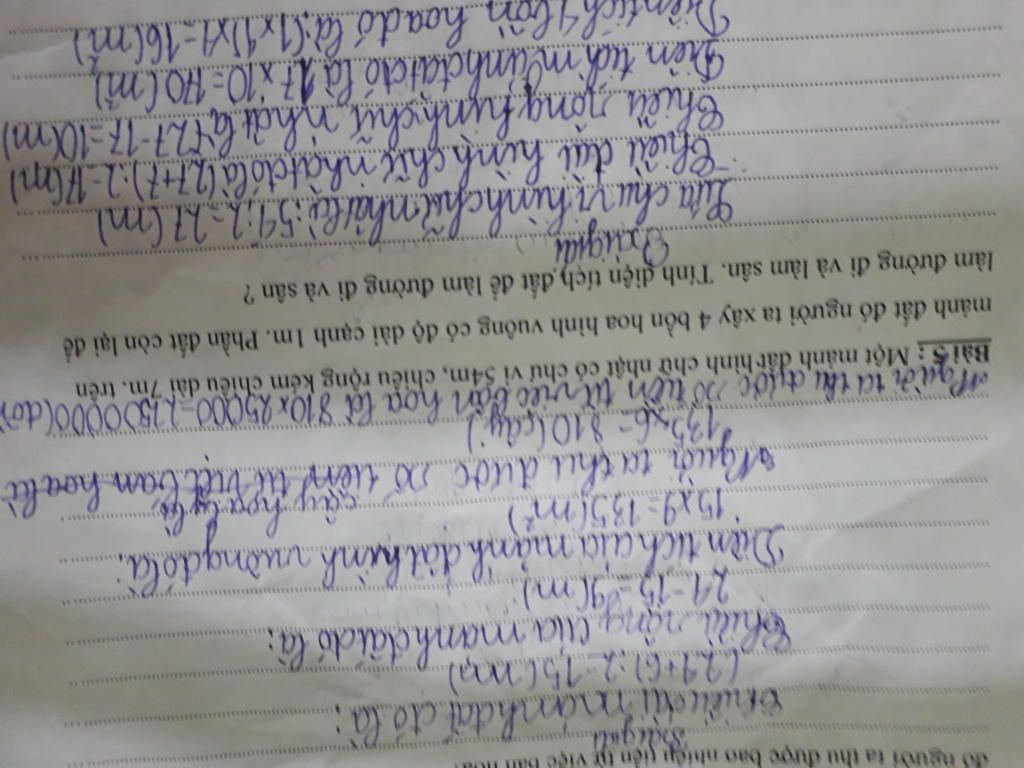 đó người ta thu được bao nhiêu tiền từ việc bán hoa.
Bài giải
Chiều dài mảnh đất đó là:
(24+6):2=15(m)
Chiều rộng của mảnh đất đó là:
24-15=9(m)
Diện tích của mảnh đất hình vuông đó là:
15x9=135(m²)
cây hoa ly là
Người ta thu được số tiền từ việt ban hoa là
135x6=810(cây)
Người ta thu được số tiền từ việc bán hoa là 810x25000=22500000(đồ
Bài 5: Một mảnh đất hình chữ nhật có chu vi 54m, chiều rộng kém chiều dài 7m. trên
mảnh đất đó người ta xây 4 bồn hoa hình vuông có độ dài cạnh 1m. Phần đất còn lại để
làm đường đi và làm sân. Tính diện tích đất để làm đường đi và sân ?
Bài giải
Nửa chu vi hình chữ nhật là: 54:2=27(m)
Chiều dài hình chữ nhật đó là (27+7):2=17(m)
Chiều rộng hình chữ nhật là 27-17=10(m)
Diện tích mảnh đất đó là 17x10=170(m²)
Diện tích 4 bồn hoa đó là:(1x4)x4=16(m²)